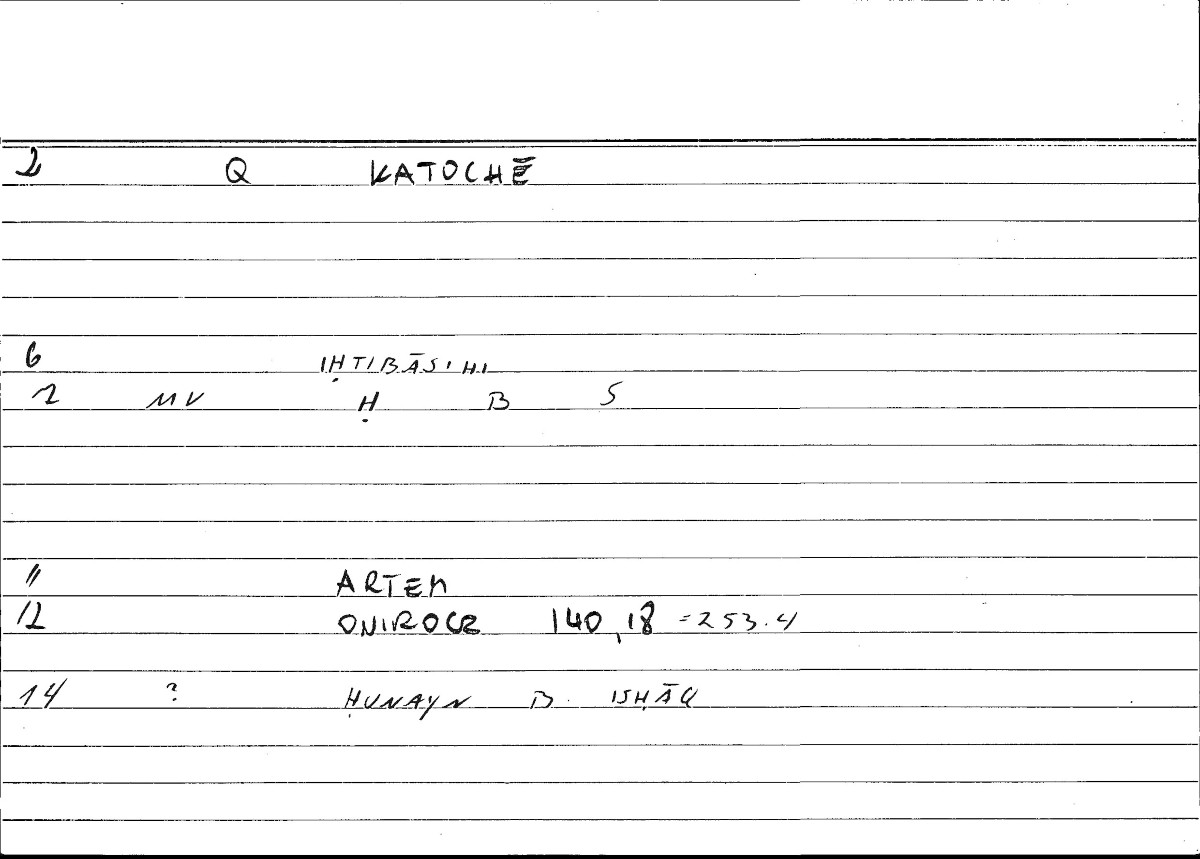 2 Q KATOCHĒ
6 IḤTIBĀSIHI
1 MV Ḥ B S
" ARTEM
12 ONIROCR 140,18 =253.4
14 ? ḤUNAYN B. ISḤĀQ